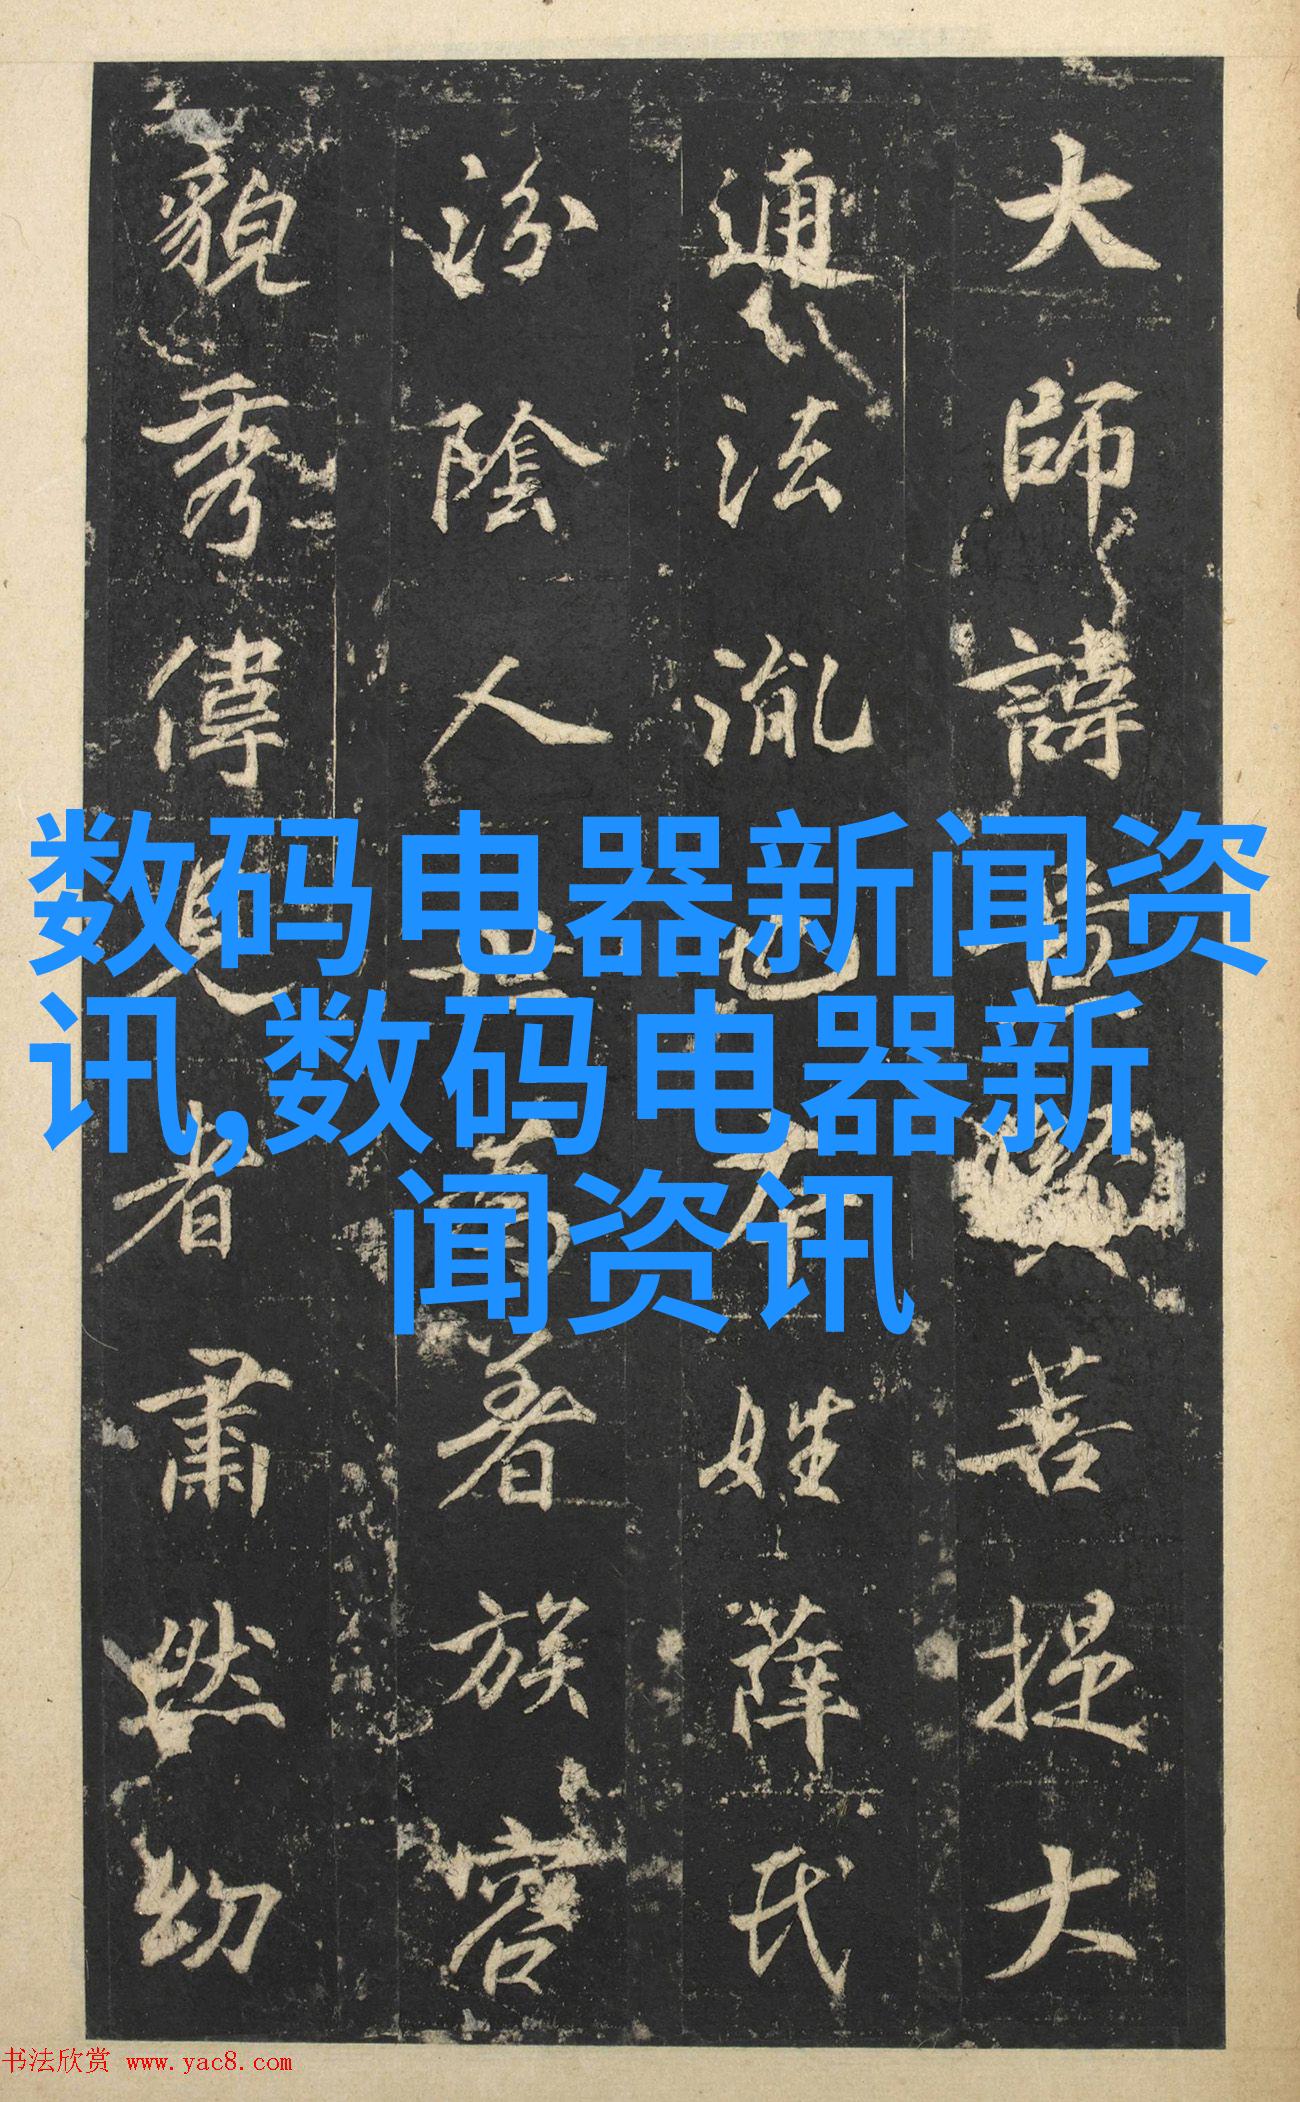 大師諱菩提大
通法也姓薛氏
汾陰人著族容
貌秀偉見者肅然幼
数码电器新闻资
讯,数码电器新
闻资讯
书法欣赏 www.yac8.com